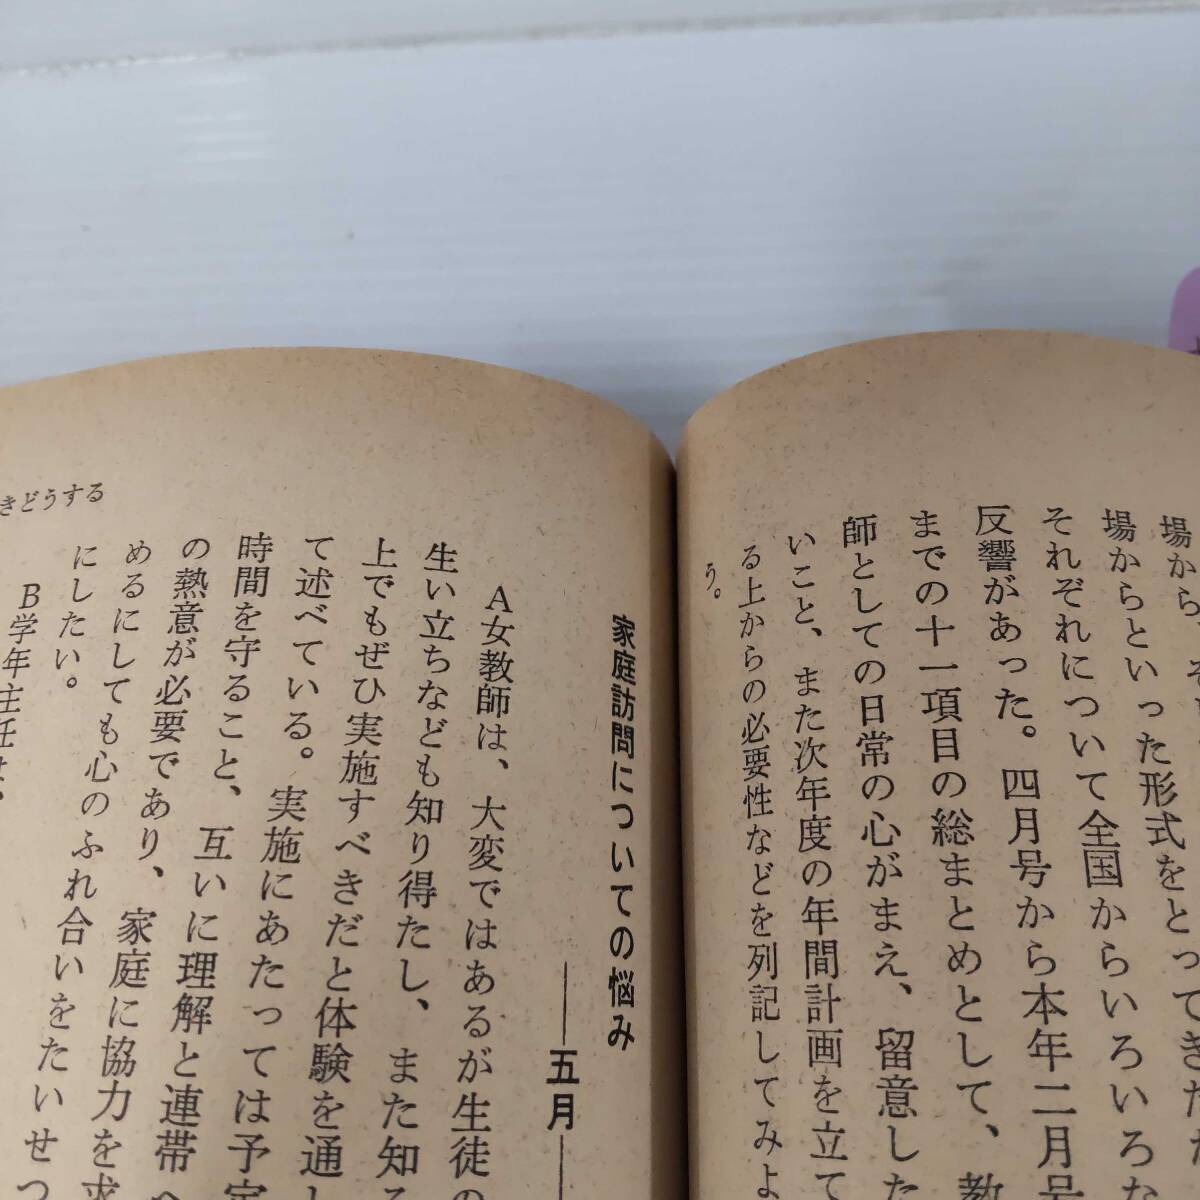 場から、そ
場からといった形式をとってきた
それぞれについて全国からいろいろな
反響があった。四月号から本年二月号
までの十一項目の総まとめとして、教
師としての日常の心がまえ、留意した
いこと、また次年度の年間計画を立て
る上からの必要性などを列記してみよ
う。
家庭訪問についての悩み
――五月―
A女教師は、大変ではあるが生徒の
生い立ちなども知り得たし、また知る
上でもぜひ実施すべきだと体験を通し
て述べている。実施にあたっては予定
時間を守ること、互いに理解と連帯へ
の熱意が必要であり、家庭に協力を求
めるにしても心のふれ合いをたいせつ
にしたい。
B学年主任は、
きどうする